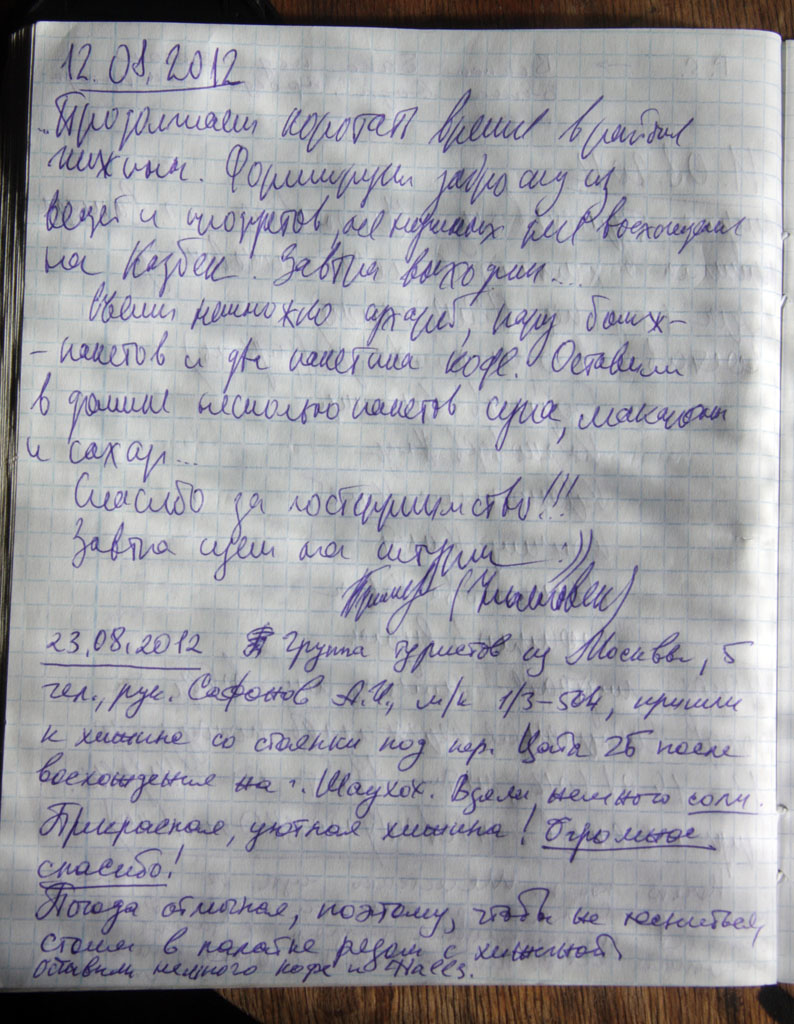 12.08.2012
Продолжаем коротать время в районе
хижины. Формируем заброску из
вещей и продуктов, не нужных для восхождения
на Казбек. Завтра выходим...
Съели немножко, пару бомж-
-пакетов и два пакетика кофе. Оставили
в домике несколько пакетов супа, макароны
и сахар...
Спасибо за гостеприимство!!!
Завтра идем на штурм :))
23.08.2012 Группа туристов из Москвы, 5
чел., рук. Сафонов А.И., м/к 1/3-504, пришли
к хижине со стоянки под пер. Цата 2Б после
восхождения на г. Шаухох. Взяли немного соли.
Прекрасная, уютная хижина! Огромное
спасибо!
Погода отличная, поэтому, чтобы не тесниться,
стоим в палатке рядом с хижиной
Оставили немного кофе и Halls.